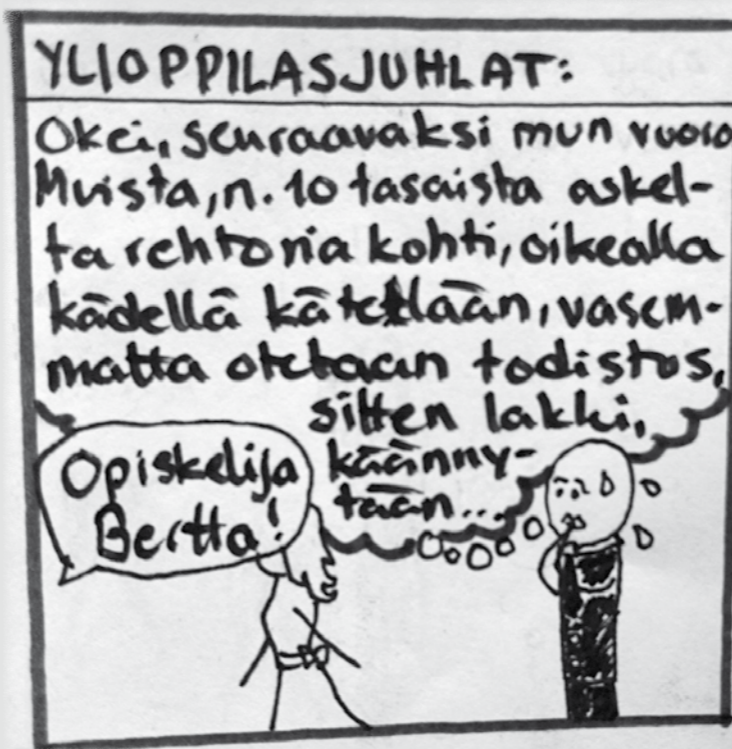 YLIOPPILASJUHLAT:
Okei, seuraavaksi mun vuoro
Muista, n. 10 tasaista askel-
ta rehtoria kohti, oikealla
kädellä kätellään, vasem-
malta otetaan todistus,
sitten lakki,
käänny-
tään...
Opiskelija
Bertta!